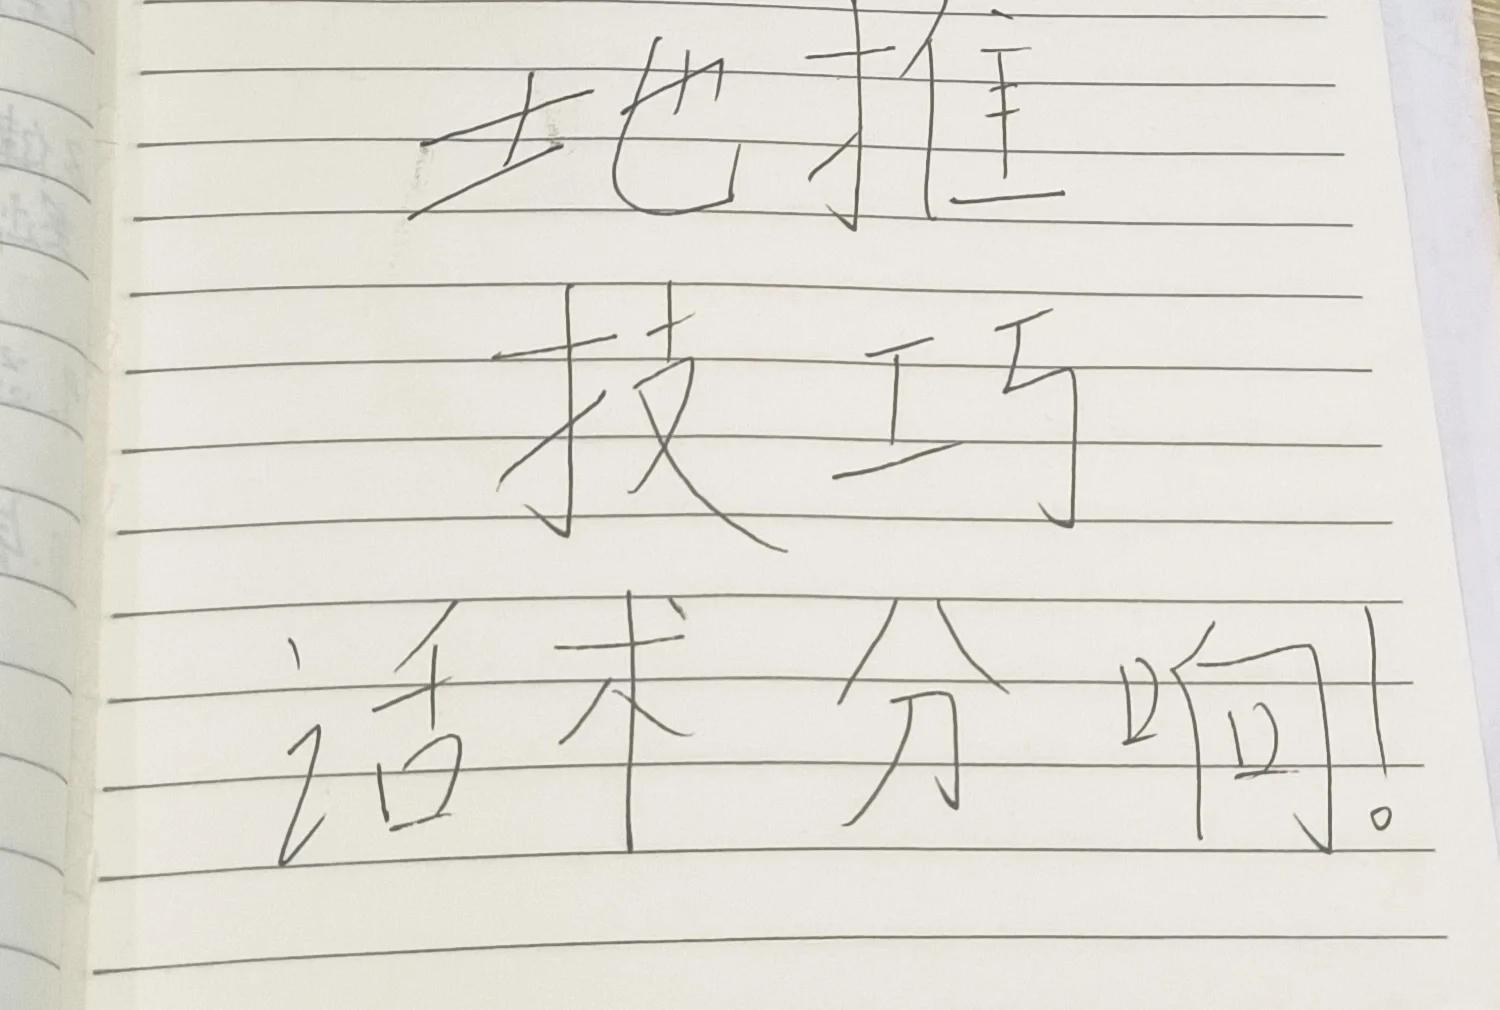 地推
技巧
话术分响!